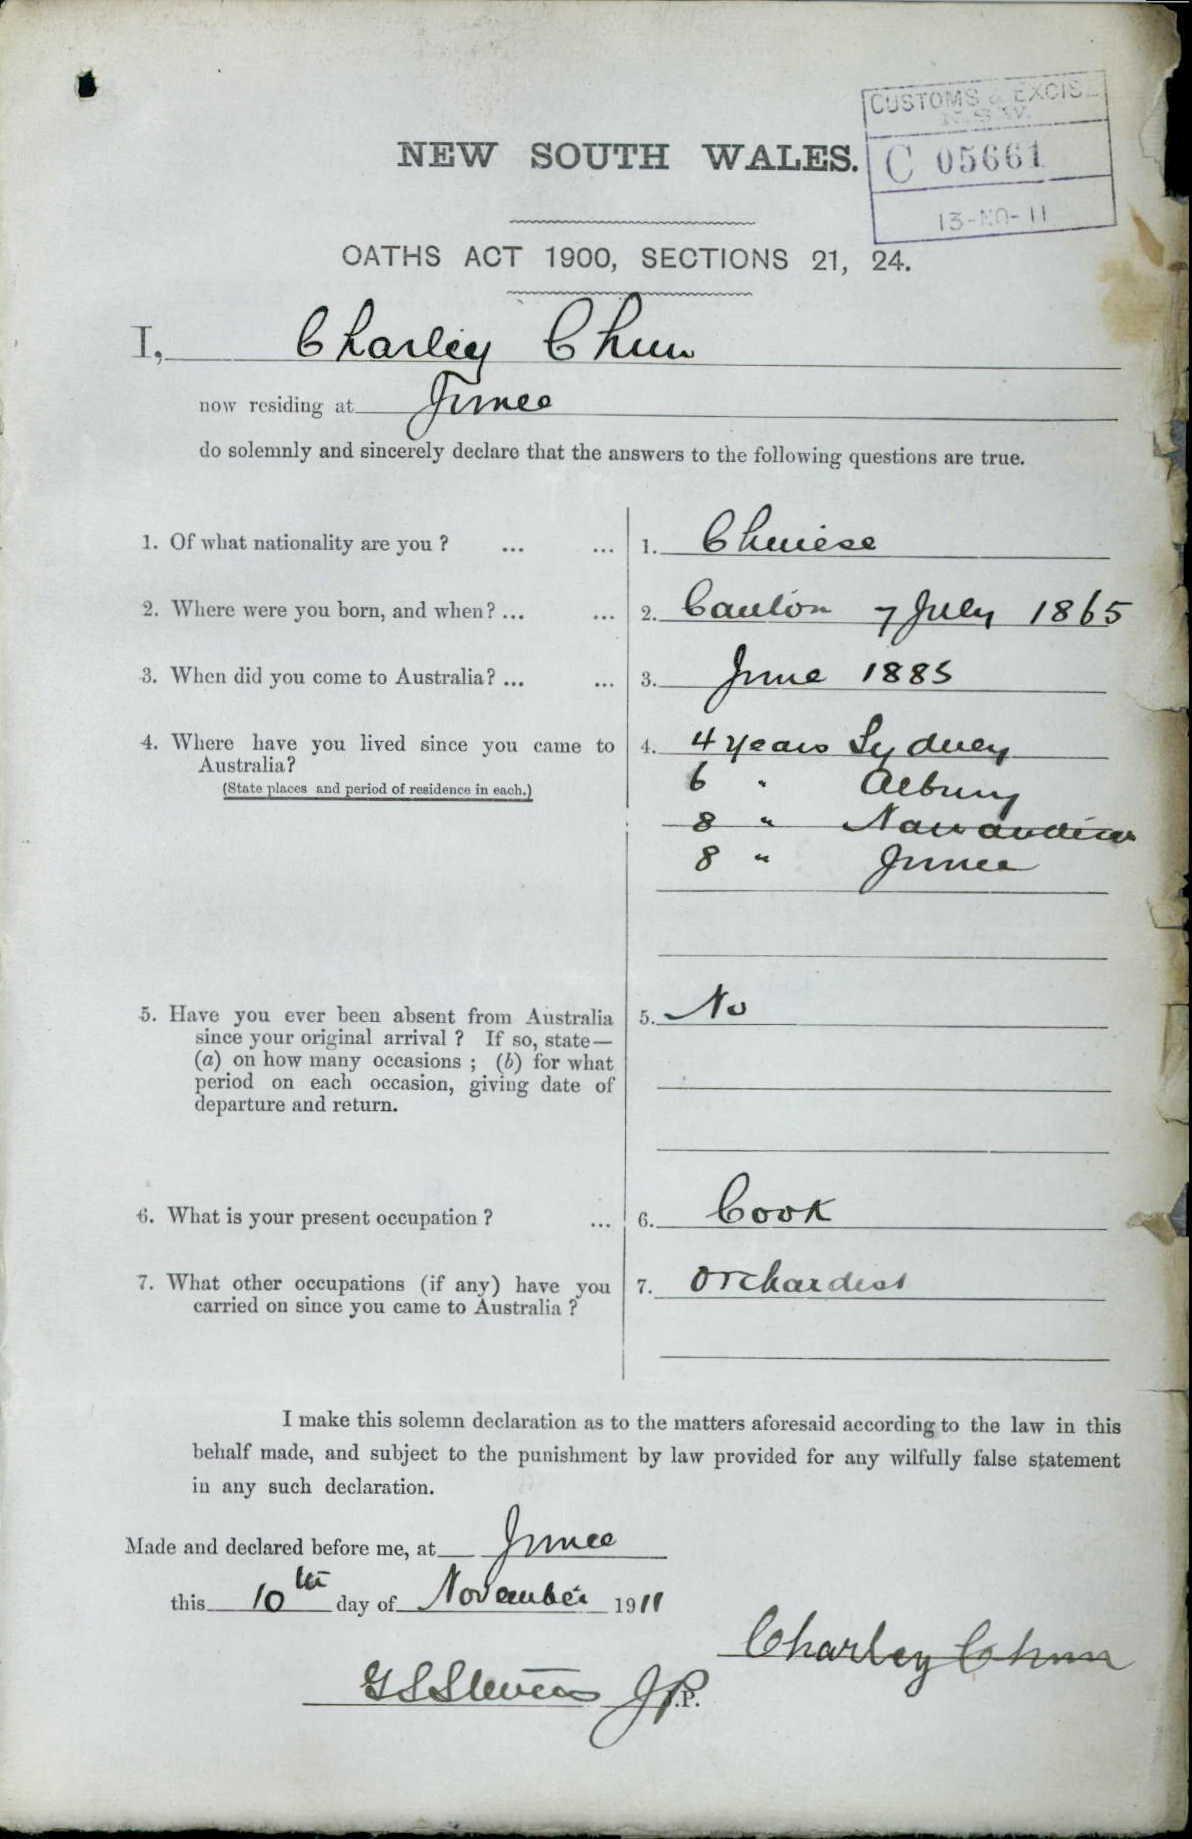 CUSTOMS & EXCISE
N.S.W.
C 05661
13-NO-11
NEW SOUTH WALES.
OATHS ACT 1900, SECTIONS 21, 24.
I, Charley Chun
now residing at Junee
do solemnly and sincerely declare that the answers to the following questions are true.
1. Of what nationality are you ? ... ... 1. Chinese
2. Where were you born, and when? ... ... 2. Canton 7 July 1865
3. When did you come to Australia? ... ... 3. June 1885
4. Where have you lived since you came to 4. 4 years Sydney
Australia?
(State places and period of residence in each.) 6 " Albury
8 " Narrandera
8 " Junee
5. Have you ever been absent from Australia 5. No
since your original arrival ? If so, state—
(a) on how many occasions ; (b) for what
period on each occasion, giving date of
departure and return.
6. What is your present occupation ? ... 6. Cook
7. What other occupations (if any) have you 7. Orchardist
carried on since you came to Australia ?
I make this solemn declaration as to the matters aforesaid according to the law in this
behalf made, and subject to the punishment by law provided for any wilfully false statement
in any such declaration.
Made and declared before me, at Junee
this 10th day of November 1911
Charley Chun
G S Stevens J.P.